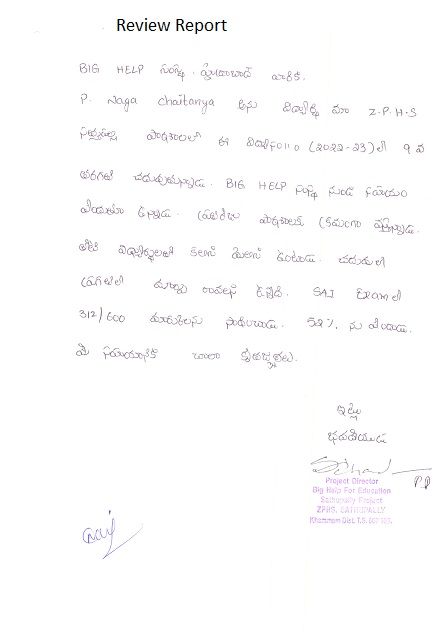 Review Report
BIG HELP సంస్థ, హైదరాబాద్ వారికి.
P. Naga Chaitanya అను విద్యార్థి మా Z.P.H.S
పాఠశాలలో ఈ విద్యా సం॥౦ (2022-23)లో 9 వ
తరగతి చదువుతున్నాడు. BIG HELP సంస్థ నుండి సహాయం
పొందుతూ ఉన్నాడు. ప్రతిరోజు పాఠశాలకు క్రమంగా వస్తున్నాడు.
తోటి విద్యార్థులతో కలసి మెలసి ఉంటాడు. చదువులో
ప్రగతిలో మార్పు రావలసి ఉన్నది. SA1 Exam లో
312/600 మార్కులను సాధించాడు. 52% ను పొందాడు.
మీ సహాయానికి చాలా కృతజ్ఞతలు.
ఇట్లు
భవదీయుడు
Project Director
Big Help For Education
Sathupally Project
ZPHS, SATHUPALLY
Khammam Dist. T.S. 507 303.